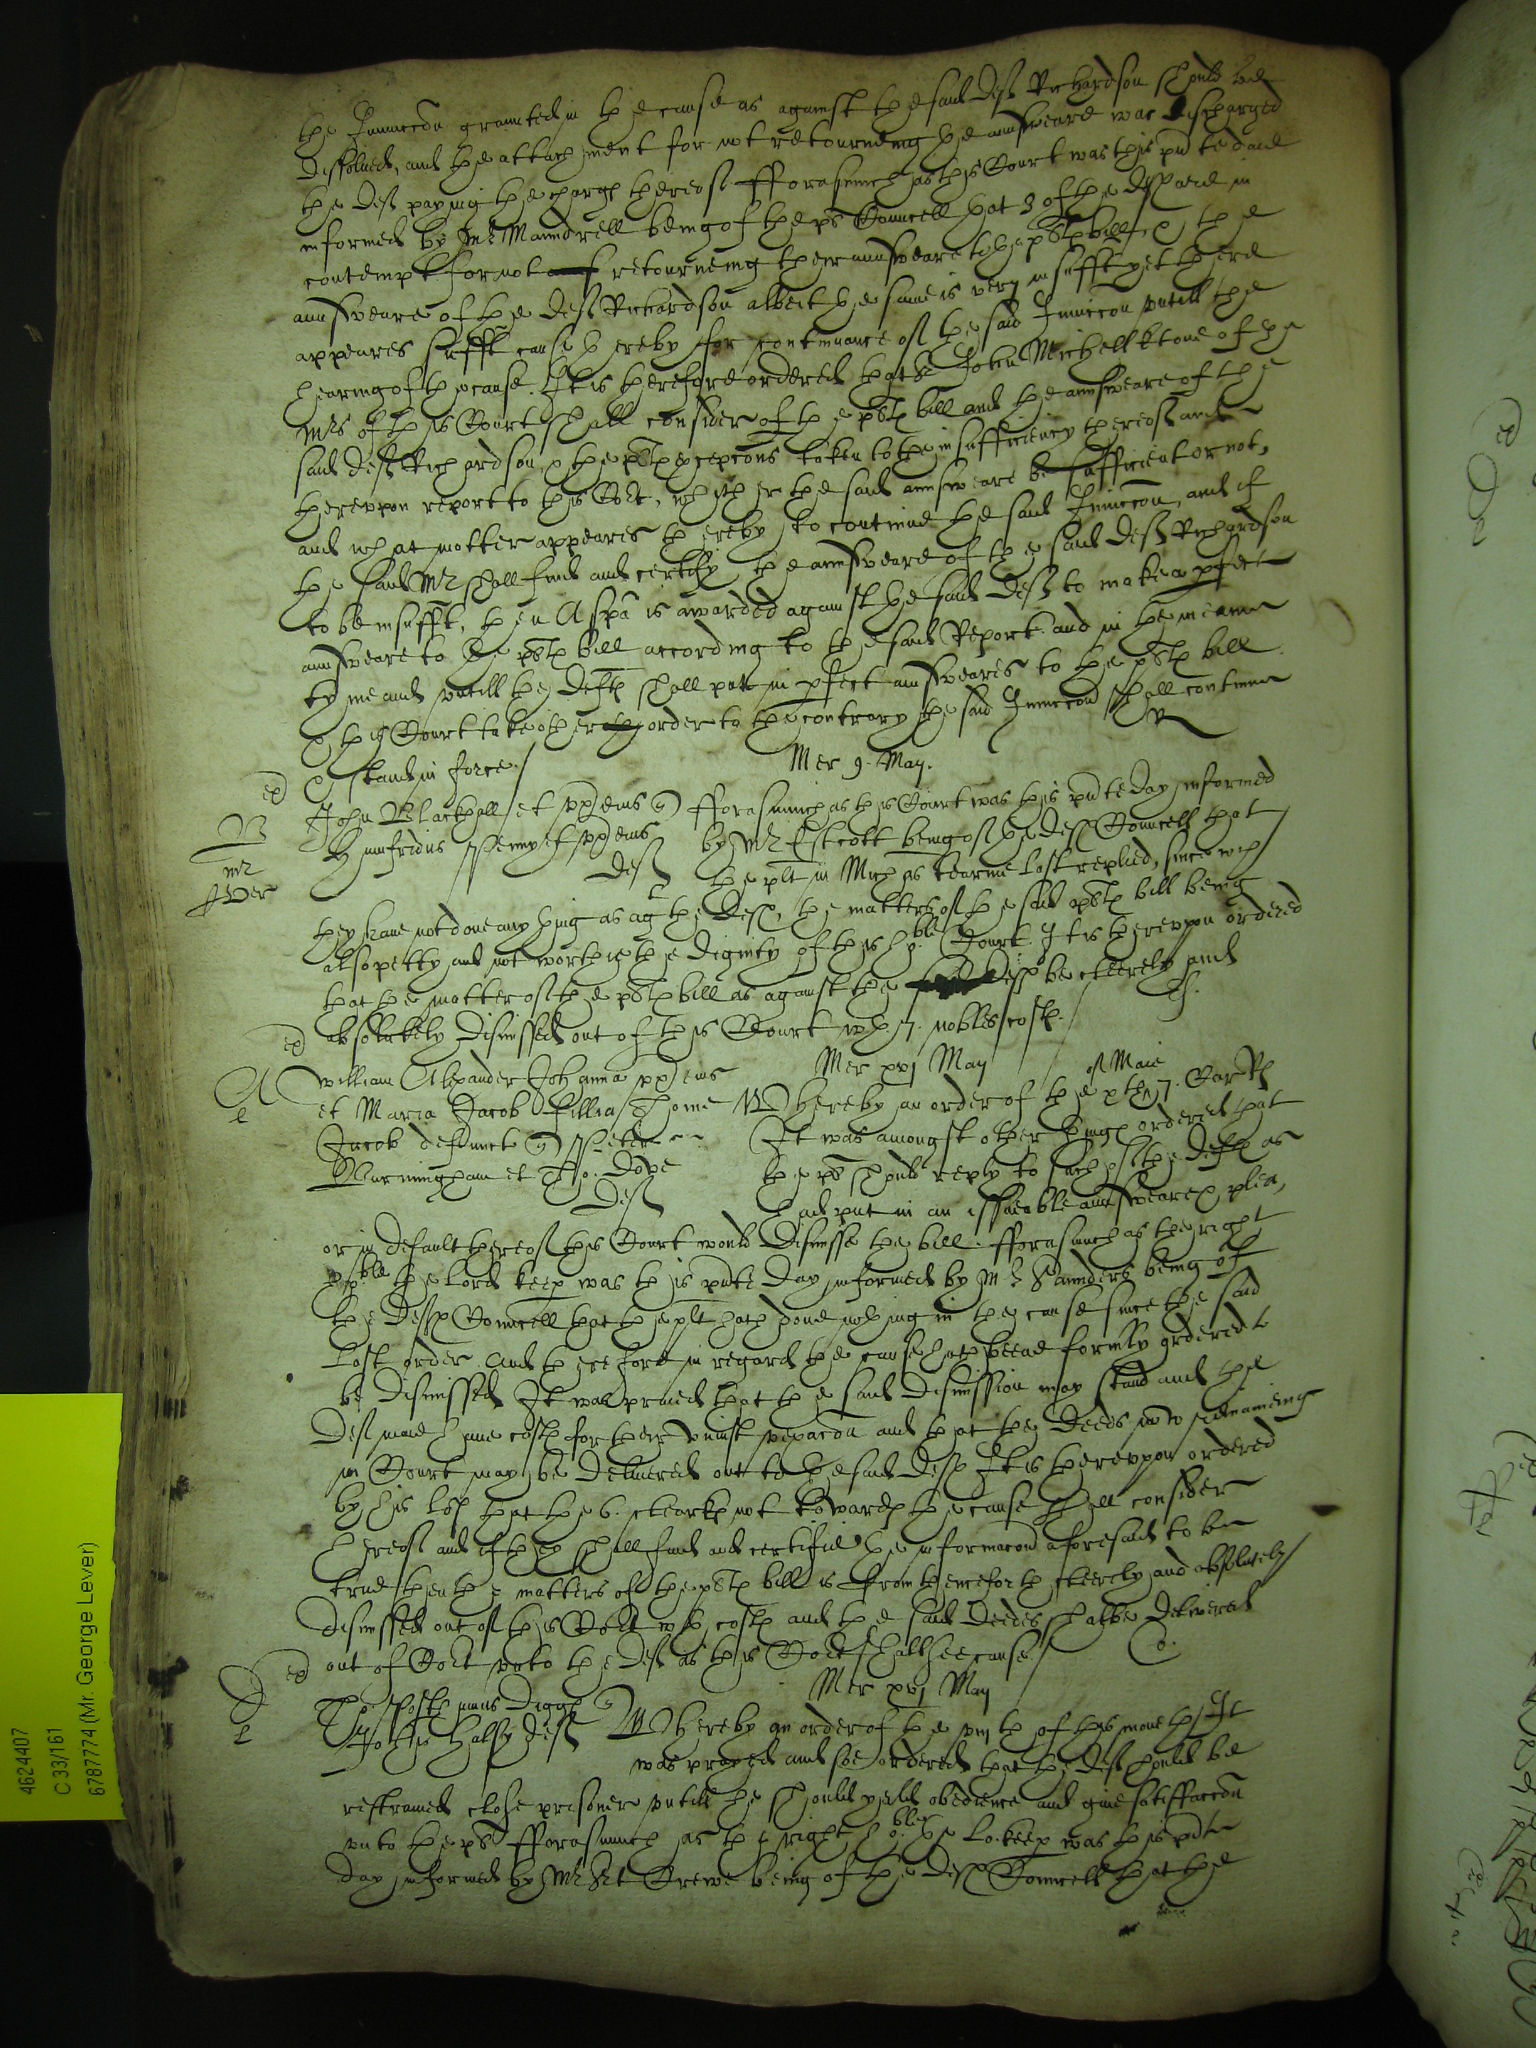 the Iniuncc̃on graunted in the cause as against the said deft Richardson should bee
dissolued, and the attachment for not retourneing the answeare was discharged
the deft paying the charge thereof fforasmuch as this Court was this pn̄te daie
informed by Mr Maundrell being of the pl̃s Councell that 3 of the defts are in
contempt for not retourneing their answeare to the plts bill the
answeare of the deft Richardson albeit the same is very insufft yet there
appeares sufft cause thereby for continuance of the said Iniuncc̃on vntill the
hearing of the cause. It is therefore ordered that Sr John Michell kt one of the
Mrs of this Court shall consider of the plts bill and the answeare of the
said deft Richardson & the plts excepcons taken to the insufficiency thereof and
therevpon report to this Cort, whether the said answeare be sufficient or not,
and what matter appeares thereby to continue the said Iniuncc̃on, and if
the said Mr shall find and certify the answeare of the said deft Richardson
to be insufft, then A spa is awarded against the said deft to make a pfect
answeare to the plts bill according to the said Report and in the meane
tyme and vntill the defts shall putt in pfect answeares to the plts bill
& this Court take other order to the contrary the said Iniuncc̃on shall continue
& stand in force./
R
Mer 9. May.
ex
B
mr
Tver
John Blackhall et
Humfridus Penny et
deft
fforasmuch as this Court was this pn̄te day informed
by Mr Estcott being of the defts Councell that
the plt in Michis tearme last replied, since wch
they haue not done any thing as agt the defts, the matters of the said plts bill being
also petty and not worth the dignity of this hoble Court. It is therevpon ordered
that the matter of the plts bill as against the defts be cleerely and
absolutely dismissed out of this Court wth 7. nobles costs.
ex
A
e
Mer xvj May
William Alexander Johanna
et Maria Jacob fillia Thome
Jacob defuncte qr Peter
Burningham et Tho: Dove
deft
Whereby an order of the xth of Maie 7. Car Rs
It was amongst other things ordered that
the pl̃ should reply to such of the defts as
had put in an issueable answeare or plea,
or in default thereof this Court would dismisse the bill. fforasmuch as the right
hoble the Lord keep was this pn̄te day informed by Mr Saunders being of
the defts Councell that the plt hath done nothing in the cause since the said
last order And therefore in regard the cause hath beene formly ordered to
be dismissed It was praied that the said dismission may stand and the
deft maie haue costs for their vniust vexac̃on and that the deeds now remaineing
in Court may be deliuered out to the said defts It is therevpon ordered
by his Lop that the 6. clearks not towards the cause shall consider
thereof and if they shall find and certifie the informac̃on aforesaid to be
true then the matters of the plts bill is from thenceforth cleerely and absolutely
dismissed out of this Cort wth costs and the said deedes shalbe deliuered
out of Cort vnto the deft as this Cort shall see cause./
ex
D
e
Mer xvj May
John Halsy deft
Whereby an order of the viijth of this moneth It
was prayed and soe ordered that the deft should be
restrained close prisoner vntill he should yeild obedience and giue satisfacc̃on
vnto the pl̃ fforasmuch as the right hoble the Lo: keep was this pn̄te
day informed by Mr Srt Crewe being of the defts Councell that the
4624407
C 33/161
6787774 (Mr. George Lever)